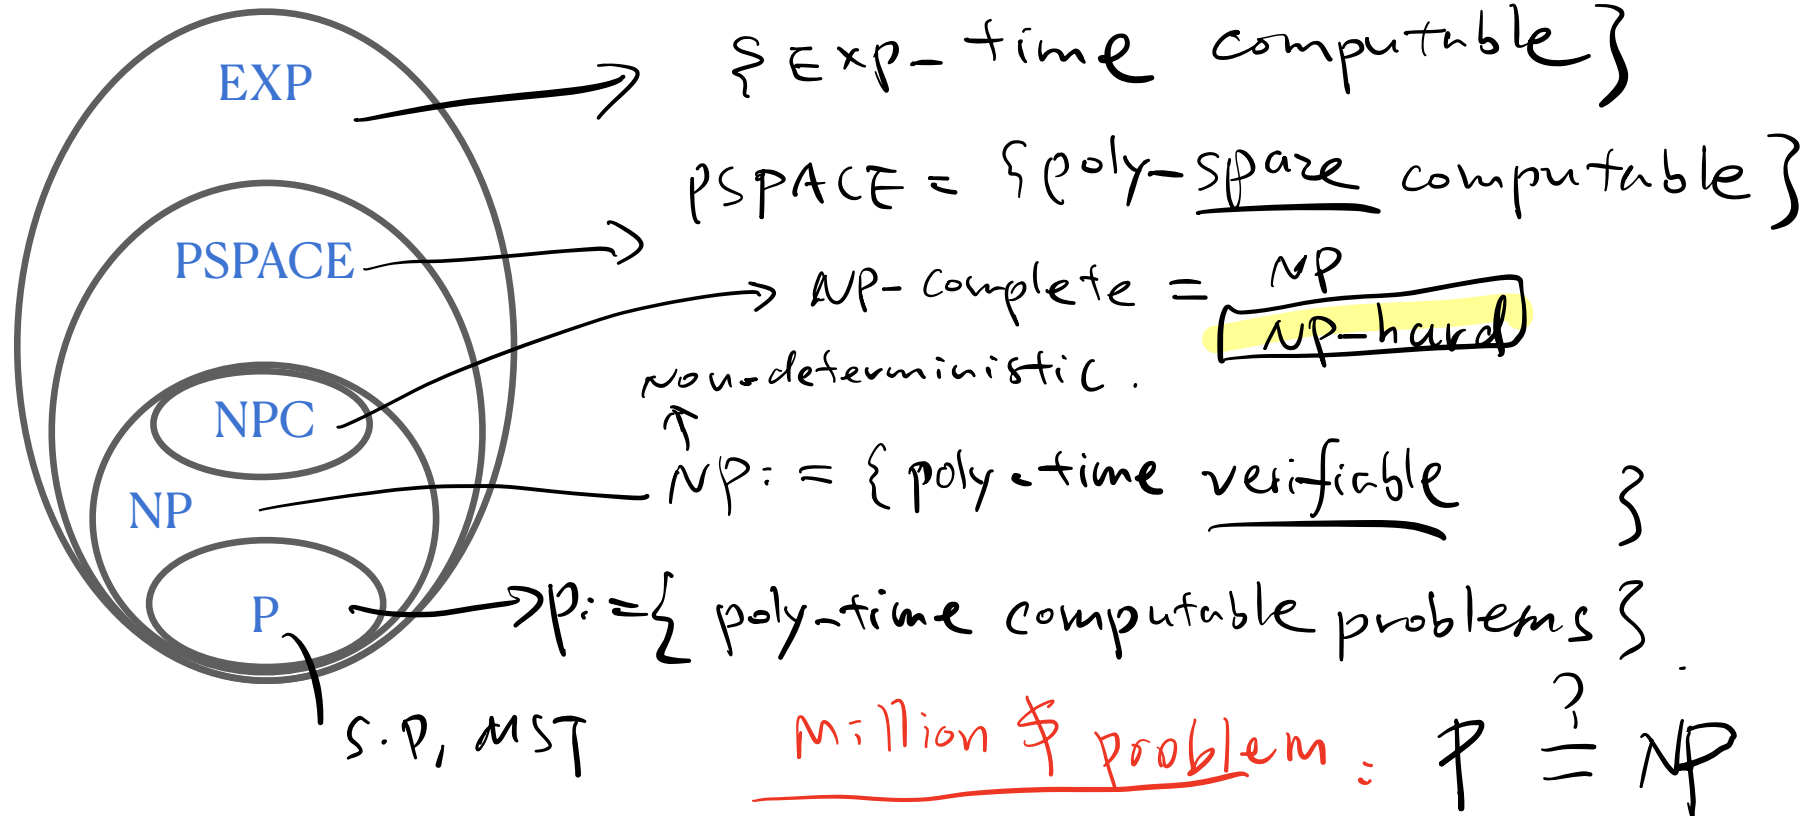 EXP
{Exp-time computable}
PSPACE
PSPACE = {poly-space computable}
NPC
NP-complete = NP
NP-hard
Non-deterministic.
NP
NP := {poly-time verifiable }
P
P := { poly-time computable problems }.
S.P, MST
Million $ problem : P ?= NP